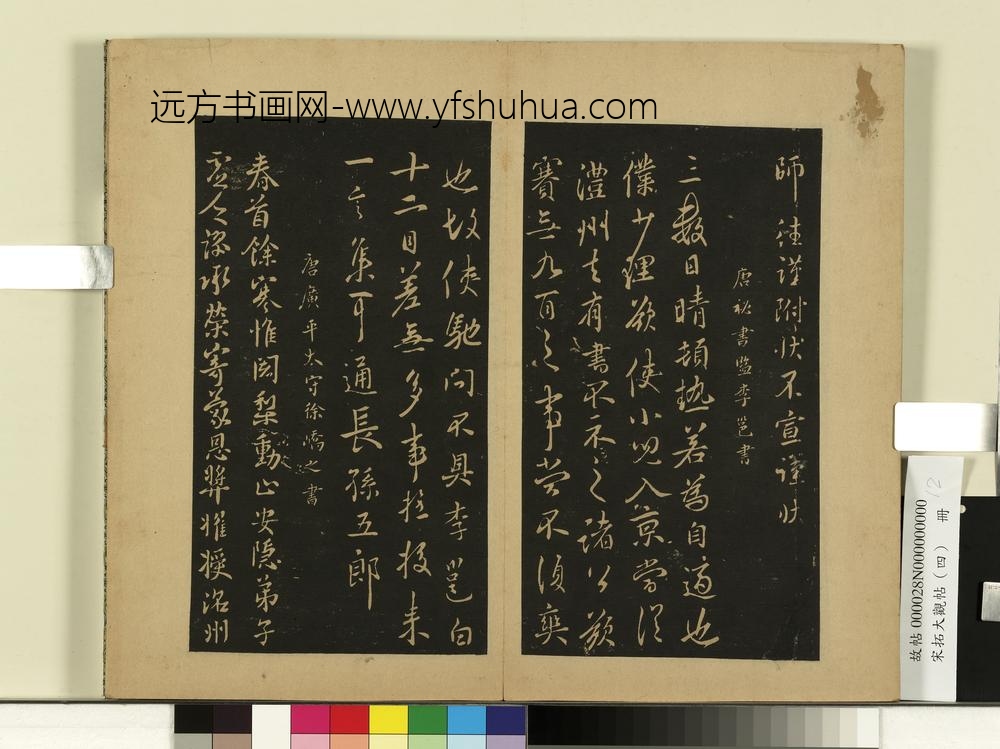 远方书画网-www.yfshuhua.com
師往謹附状不宣謹状
唐秘書監李邕書
三數日晴頓熱若為自適也
僕少理欲使小兒入京當從
澧州去有書不不之諸公欲
賽無九百之事當不須奭
也故使馳問不具李邕白
十二日差無多事拉拔来
一言集可通長孫五郎
唐廣平太守徐嶠之書
春首餘寒惟闍梨動止安隱弟子
虛令謬承榮寄蒙恩擢授洺州
故帖000028N000000000
宋拓大觀帖(四) 冊 12